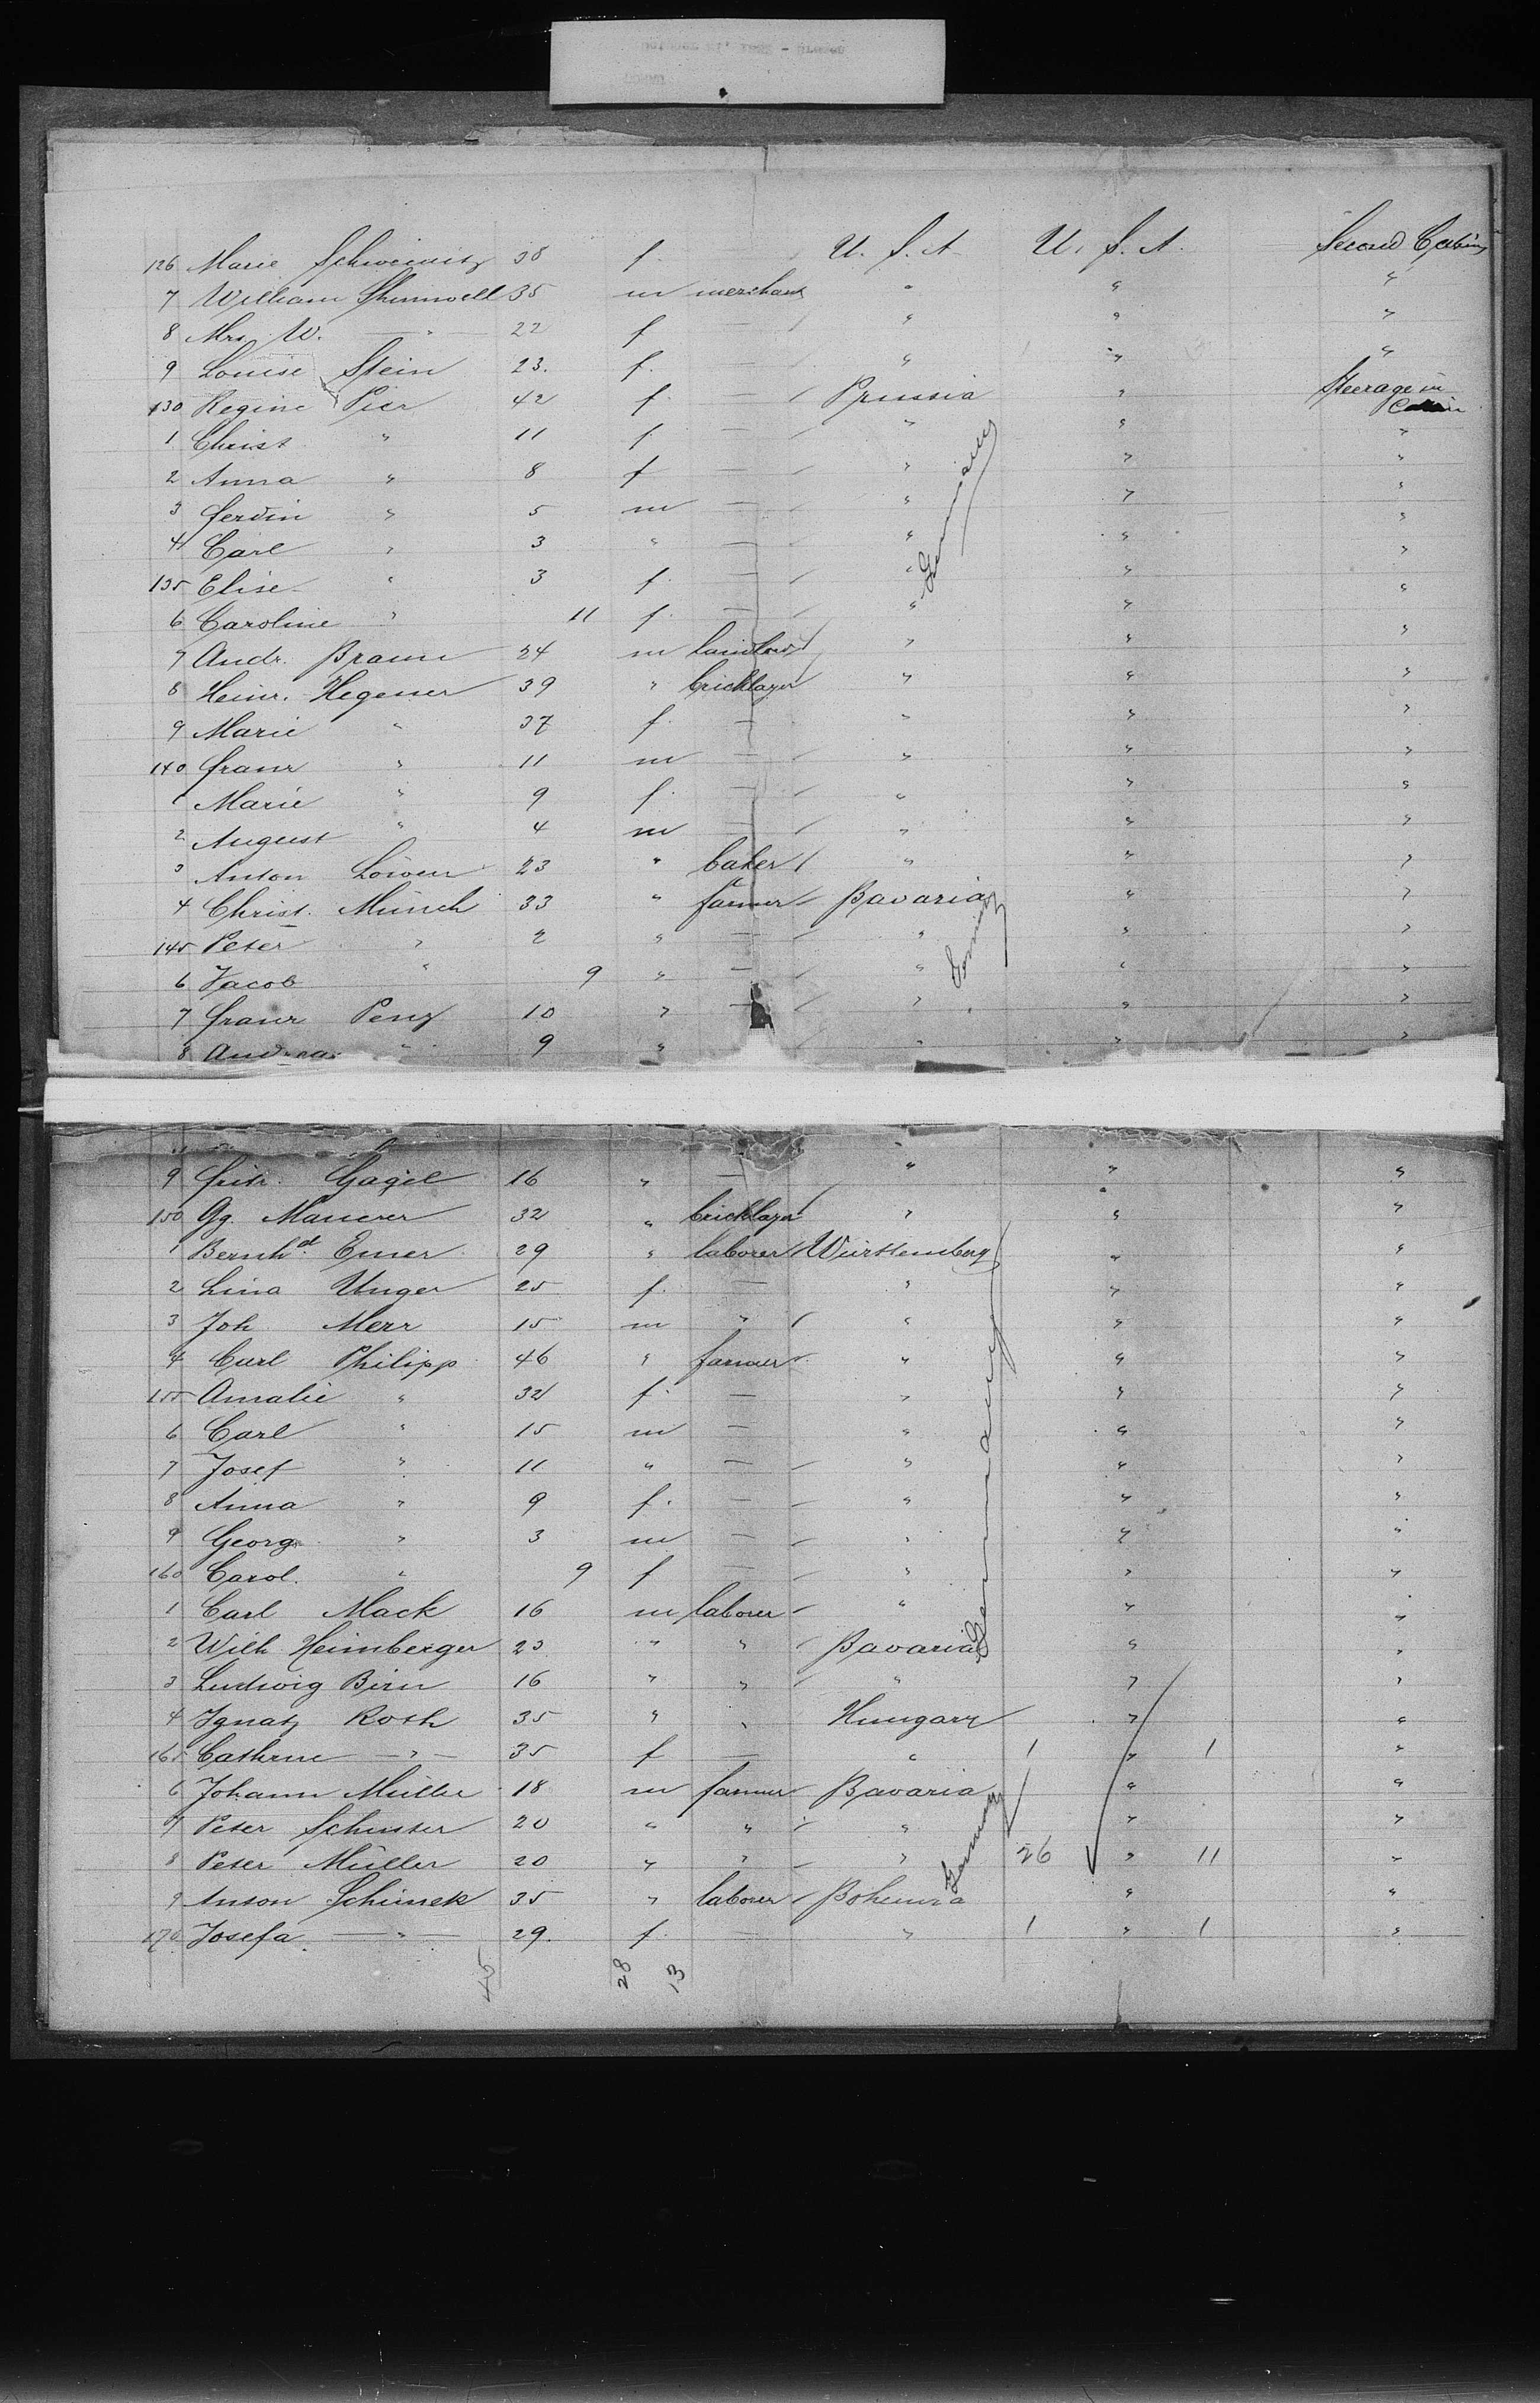 126 Marie Schweinitz 38 f. U. S. A. U. S. A. Second Cabin
7 William Shumwell 35 m merchant " " "
8 Mrs. W. — " — 22 f — " " "
9 Louise Stein 23. f. — " " "
130 Regine Pier 42 f — Prussia " Steerage in
1 Christ " 11 f — " " "
2 Anna " 8 f — " " "
3 Ferdin " 5 m — " " "
4 Carl " 3 " — " " "
135 Elise " 3 f. — " " "
6 Caroline " 11 f. — " " "
7 Andr. Braun 24 m " " "
8 Heinr. Hegener 39 " bricklayer " " "
9 Marie " 37 f. — " " "
140 Franz " 11 m — " " "
1 Marie " 9 f. — " " "
2 August " 4 m — " " "
3 Anton Löwen 23 " baker " " "
4 Christ. Münch 33 " farmer Bavaria " "
145 Peter " 2 " — " " "
6 Jacob " 9 " — " " "
7 Franz Penz 10 " — " " "
8 Andreas " 9 " " " "
Germany
Germany
9 Fritz Gagel 16 " — " " "
150 Gg. Maurer 32 " bricklayer " " "
1 Bernhd Emer 29 " laborer Württemberg " "
2 Lina Unger 25 f. — " " "
3 Joh. Merz 15 m " " " "
4 Carl Philipp 46 " farmer " " "
155 Amalie " 32 f. — " " "
6 Carl " 15 m — " " "
7 Josef " 11 " — " " "
8 Anna " 9 f. — " " "
9 Georg " 3 m — " " "
160 Carol. " 9 f — " " "
1 Carl Mack 16 m laborer " " "
2 Wilh. Heimberger 23 " " Bavaria " "
3 Ludwig Birn 16 " " " " "
4 Ignatz Roth 35 " " Hungary " "
165 Cathrine — " — 35 f — " 1 " 1 "
6 Johann Müller 18 m farmer Bavaria " "
7 Peter Schuster 20 " " " " "
8 Peter Müller 20 " " " 26 " 11 "
9 Anton Schimek 35 " laborer Bohemia " "
170 Josefa — " — 29. f. — " 1 " 1 "
Germany
Germany
45 28 13